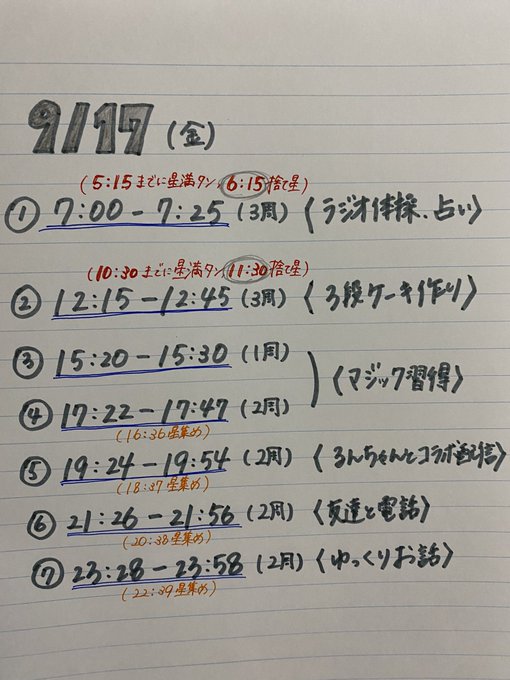 9/17 (金)
(5:15までに星満タン、6:15捨て星)
① 7:00-7:25 (3周) 〈ラジオ体操、占い〉
(10:30までに星満タン 11:30捨て星)
② 12:15-12:45 (3周) 〈3段ケーキ作り〉
③ 15:20-15:30 (1周)
〈マジック習得〉
④ 17:22-17:47 (2周)
(16:36星集め)
⑤ 19:24-19:54 (2周) 〈るんちゃんとコラボ配信〉
(18:37星集め)
⑥ 21:26-21:56 (2周) 〈友達と電話〉
(20:38星集め)
⑦ 23:28-23:58 (2周) 〈ゆっくりお話〉
(22:39星集め)